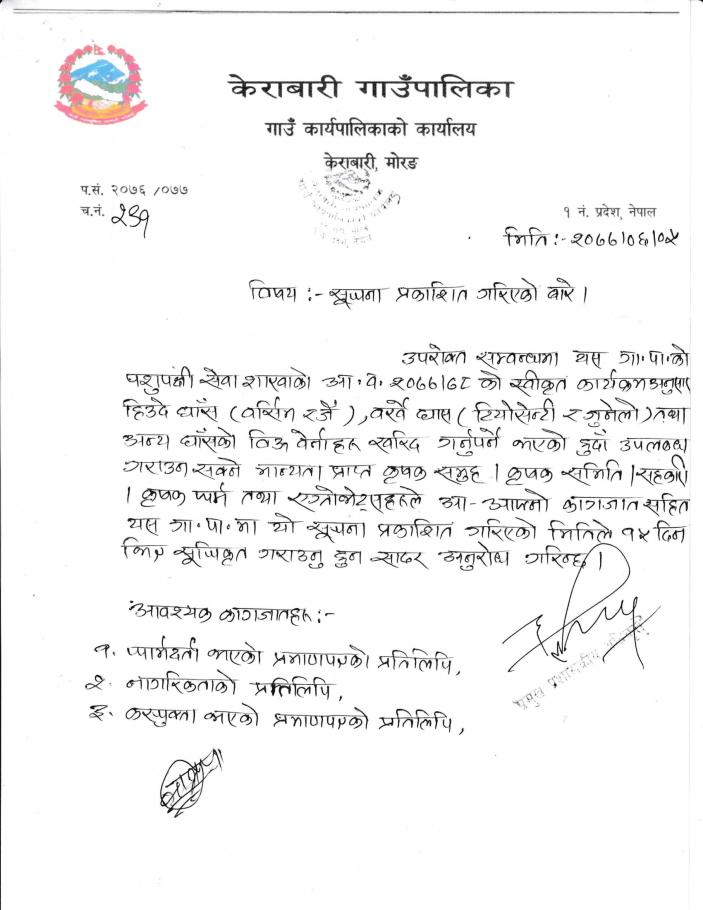 केराबारी गाउँपालिका
गाउँ कार्यपालिकाको कार्यालय
केराबारी, मोरङ
प.सं. २०७६ /०७७
च.नं. २३१
१ नं. प्रदेश, नेपाल
मिति :- २०७७।०६।०५
विषय :- सूचना प्रकाशित गरिएको बारे ।
उपरोक्त सम्वन्धमा यस गा.पा.को
पशुपंक्षी सेवा शाखाको आ.व. २०७७/७८ को स्वीकृत कार्यक्रम अनुसार
हिउदे घाँस (वर्सिम र जै), वर्खे घास (टियोसेन्टी र जुनेलो) तथा
अन्य घाँसको विऊ वेर्नाहरू खरिद गर्नुपर्ने भएको हुदाँ उपलब्ध
गराउन सक्ने मान्यता प्राप्त कृषक समुह । कृषक समिति । सहकारी
। कृषक फर्म तथा एग्रोभेट्सहरूले आ-आफ्नो कागजात सहित
यस गा.पा.मा यो सूचना प्रकाशित गरिएको मितिले १५ दिन
भित्र सूचिकृत गराउनु हुन सादर अनुरोध गरिन्छ ।
आवश्यक कागजातहरू :-
१. फार्मदर्ता भएको प्रमाणपत्रको प्रतिलिपि,
२. नागरिकताको प्रतिलिपि,
३. करचुक्ता भएको प्रमाणपत्रको प्रतिलिपि,
प्रमुख प्रशासकीय अधिकृत